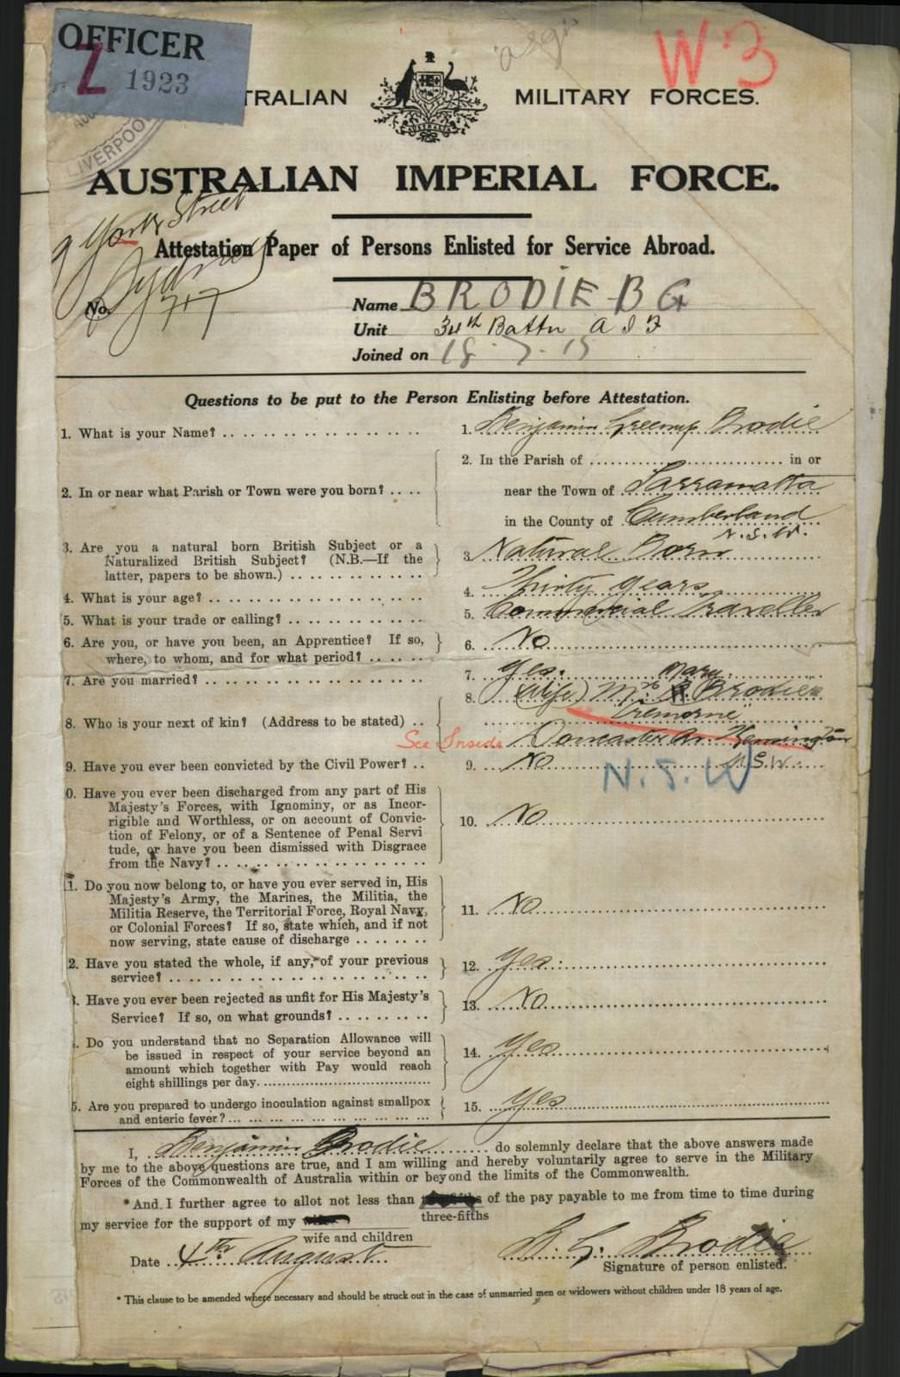 OFFICER
Z 1923
W3
TRALIAN MILITARY FORCES.
LIVERPOO
AUSTRALIAN IMPERIAL FORCE.
9 York Street
Sydney
Attestation Paper of Persons Enlisted for Service Abroad.
No. 717
Name BRODIE B G
Unit 34th Battn A I F
Joined on 18. 7. 15
Questions to be put to the Person Enlisting before Attestation.
1. What is your Name? 1. Benjamin Greenup Brodie
2. In or near what Parish or Town were you born? 2. In the Parish of in or
near the Town of Parramatta
in the County of Cumberland
N.S.W.
3. Are you a natural born British Subject or a
Naturalized British Subject? (N.B.—If the
latter, papers to be shown.) 3. Natural Born
4. What is your age? 4. Thirty years
5. What is your trade or calling? 5. Commercial Traveller
6. Are you, or have you been, an Apprentice? If so,
where, to whom, and for what period? 6. No
7. Are you married? 7. Yes.
8. Who is your next of kin? (Address to be stated) 8. (Wife) Mrs Mary Brodie
"Cremorne"
See Inside Doncaster Av. Kensington
N.S.W.
9. Have you ever been convicted by the Civil Power? 9. No
N.S.W
0. Have you ever been discharged from any part of His
Majesty's Forces, with Ignominy, or as Incor-
rigible and Worthless, or on account of Convic-
tion of Felony, or of a Sentence of Penal Servi
tude, or have you been dismissed with Disgrace
from the Navy? 10. No
1. Do you now belong to, or have you ever served in, His
Majesty's Army, the Marines, the Militia, the
Militia Reserve, the Territorial Force, Royal Navy,
or Colonial Forces? If so, state which, and if not
now serving, state cause of discharge 11. No
2. Have you stated the whole, if any, of your previous
service? 12. Yes.
. Have you ever been rejected as unfit for His Majesty's
Service? If so, on what grounds? 13. No
. Do you understand that no Separation Allowance will
be issued in respect of your service beyond an
amount which together with Pay would reach
eight shillings per day. 14. Yes
5. Are you prepared to undergo inoculation against smallpox
and enteric fever? 15. Yes
I, Benjamin Brodie do solemnly declare that the above answers made
by me to the above questions are true, and I am willing and hereby voluntarily agree to serve in the Military
Forces of the Commonwealth of Australia within or beyond the limits of the Commonwealth.
*And I further agree to allot not less than of the pay payable to me from time to time during
three-fifths
my service for the support of my
wife and children
Date 4th August B. G. Brodie
Signature of person enlisted.
* This clause to be amended where necessary and should be struck out in the case of unmarried men or widowers without children under 18 years of age.